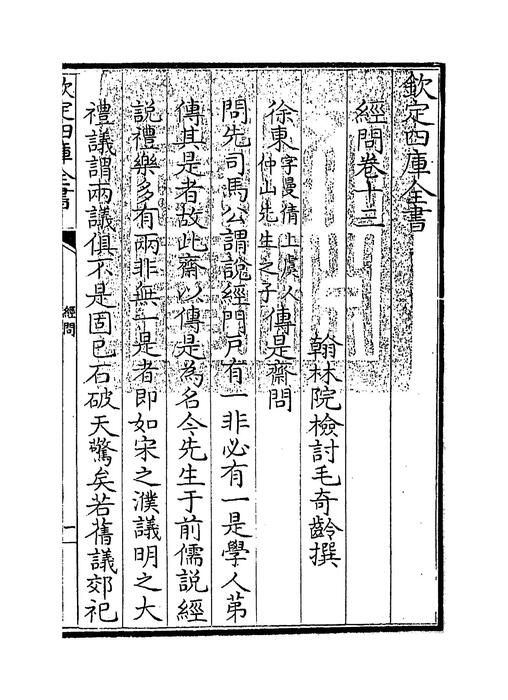 欽定四庫全書
經問卷十三
翰林院檢討毛奇齡撰
徐東字曼倩上虞人仲山先生之子傳是齋問
問先司馬公謂說經門戶有一非必有一是學人苐
傳其是者故此齋以傳是為名今先生于前儒說經
說禮樂多有兩非無一是者即如宋之濮議明之大
禮議謂兩議俱不是固已石破天驚矣若舊議郊祀
欽定四庫全書
經問
一